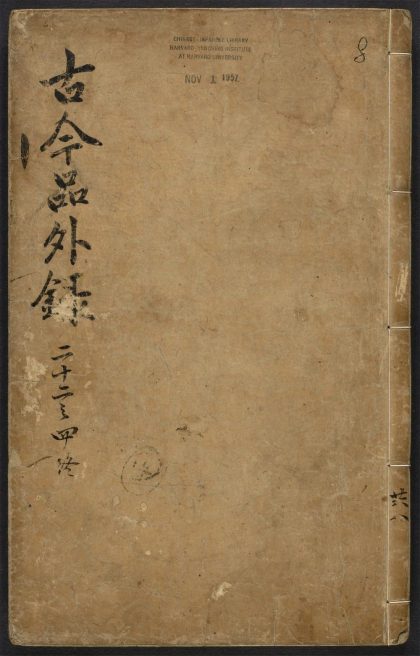 CHINESE-JAPANESE LIBRARY
HARVARD-YENCHING INSTITUTE
AT HARVARD UNIVERSITY
NOV 1 1957
8
古今品外錄
二十二之四終
共八